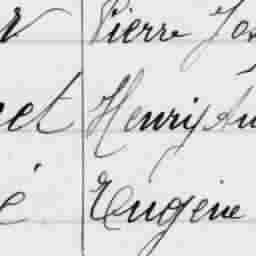 Pierre Jos
et Henry Au
é Eugène